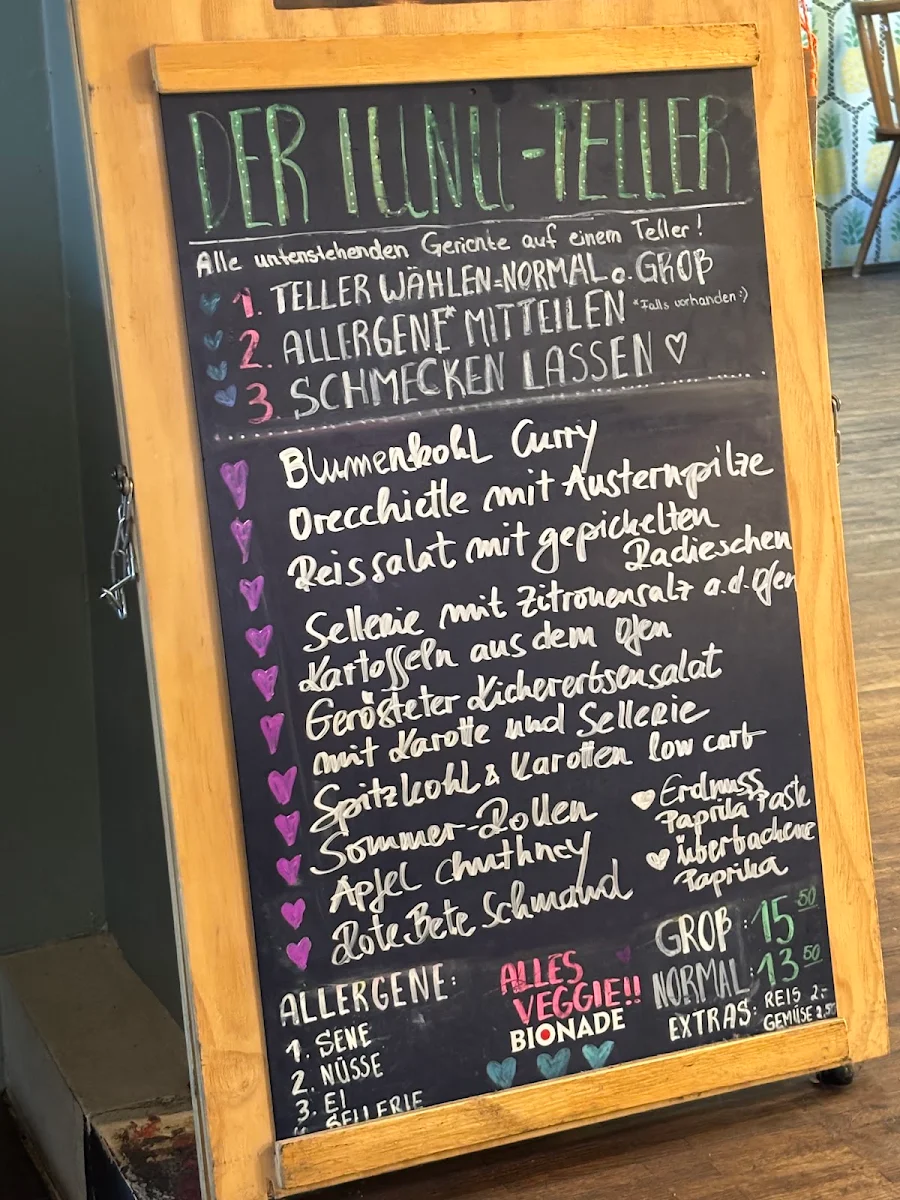 DER IUNU-TELLER
Alle untenstehenden Gerichte auf einem Teller!
1. TELLER WÄHLEN=NORMAL o. GROß
2. ALLERGENE* MITTEILEN *Falls vorhanden:)
3. SCHMECKEN LASSEN ♡
Blumenkohl Curry
Orecchiette mit Austernpilze
Reissalat mit gepickelten
Radieschen
Sellerie mit Zitronensalz a.d. Ofen
Kartoffeln aus dem Ofen
Gerösteter Kichererbsensalat
mit Karotte und Sellerie
Spitzkohl & Karotten low carb
Sommer-Rollen
Apfel Chuthney
Rote Bete Schmand
Erdnuss
Paprika Paste
überbackene
Paprika
GROß: 15 50
NORMAL: 13 50
EXTRAS: REIS 2.-
GEMÜSE 2,50
ALLES
VEGGIE!!
BIONADE
ALLERGENE:
1. SENF
2. NÜSSE
3. EI
4. SELLERIE